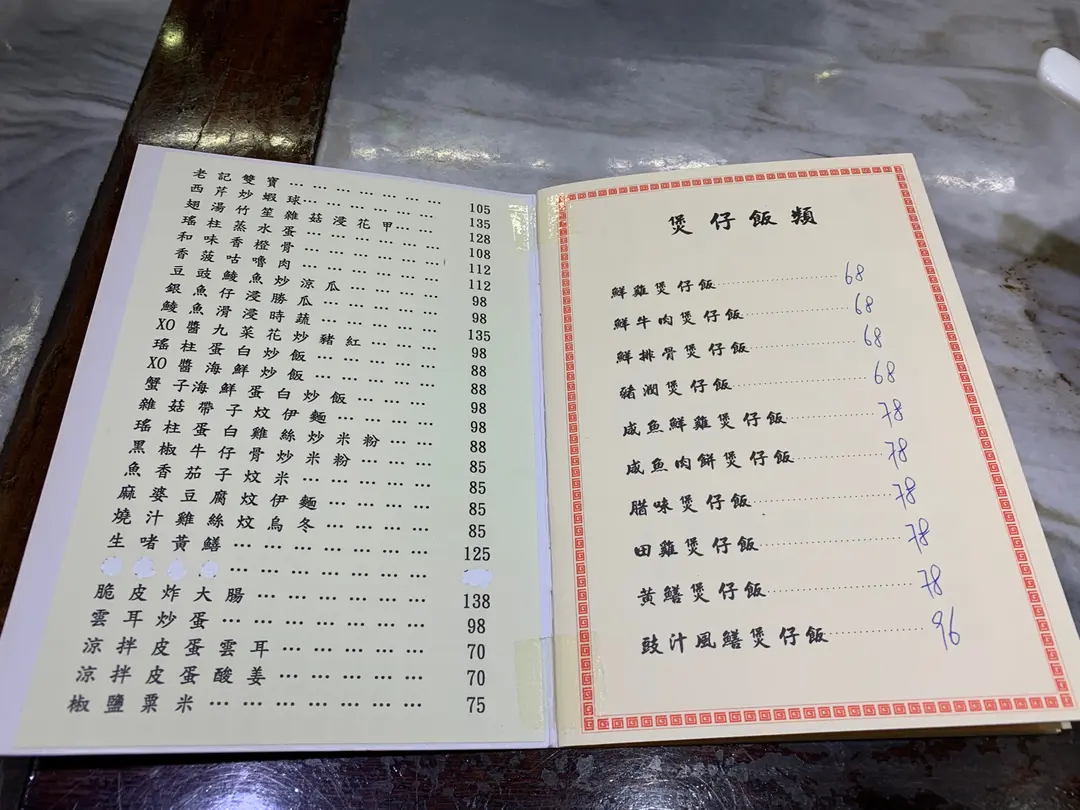 老記雙寶 … … … … … … … 105
西芹炒蝦球… … … … … … 135
翅湯竹笙雜菇浸花甲… … 128
瑤柱蒸水蛋 … … … … … … 108
和味香橙骨 … … … … … … 112
香菠咕嚕肉 … … … … … … 112
豆豉鯪魚炒涼瓜 … … … … 98
銀魚仔浸勝瓜 … … … … … 98
鯪魚滑浸時蔬 … … … … … 135
XO醬九菜花炒豬紅 … … … 98
瑤柱蛋白炒飯 … … … … … 88
XO醬海鮮炒飯 … … … … … 88
蟹子海鮮蛋白炒飯 … … … 98
雜菇帶子炆伊麵 … … … … 98
瑤柱蛋白雞絲炒米粉 … … 88
黑椒牛仔骨炒米粉 … … … 85
魚香茄子炆米 … … … … … 85
麻婆豆腐炆伊麵 … … … … 85
燒汁雞絲炆烏冬 … … … … 85
生啫黃鱔 … … … … … … … 125
脆皮炸大腸 … … … … … … 138
雲耳炒蛋 … … … … … … … 98
涼拌皮蛋雲耳 … … … … … 70
涼拌皮蛋酸姜 … … … … … 70
椒鹽粟米 … … … … … … … 75
煲仔飯類
鮮雞煲仔飯 68
鮮牛肉煲仔飯 68
鮮排骨煲仔飯 68
豬潤煲仔飯 68
咸魚鮮雞煲仔飯 78
咸魚肉餅煲仔飯 78
腊味煲仔飯 78
田雞煲仔飯 78
黃鱔煲仔飯 78
豉汁風鱔煲仔飯 96